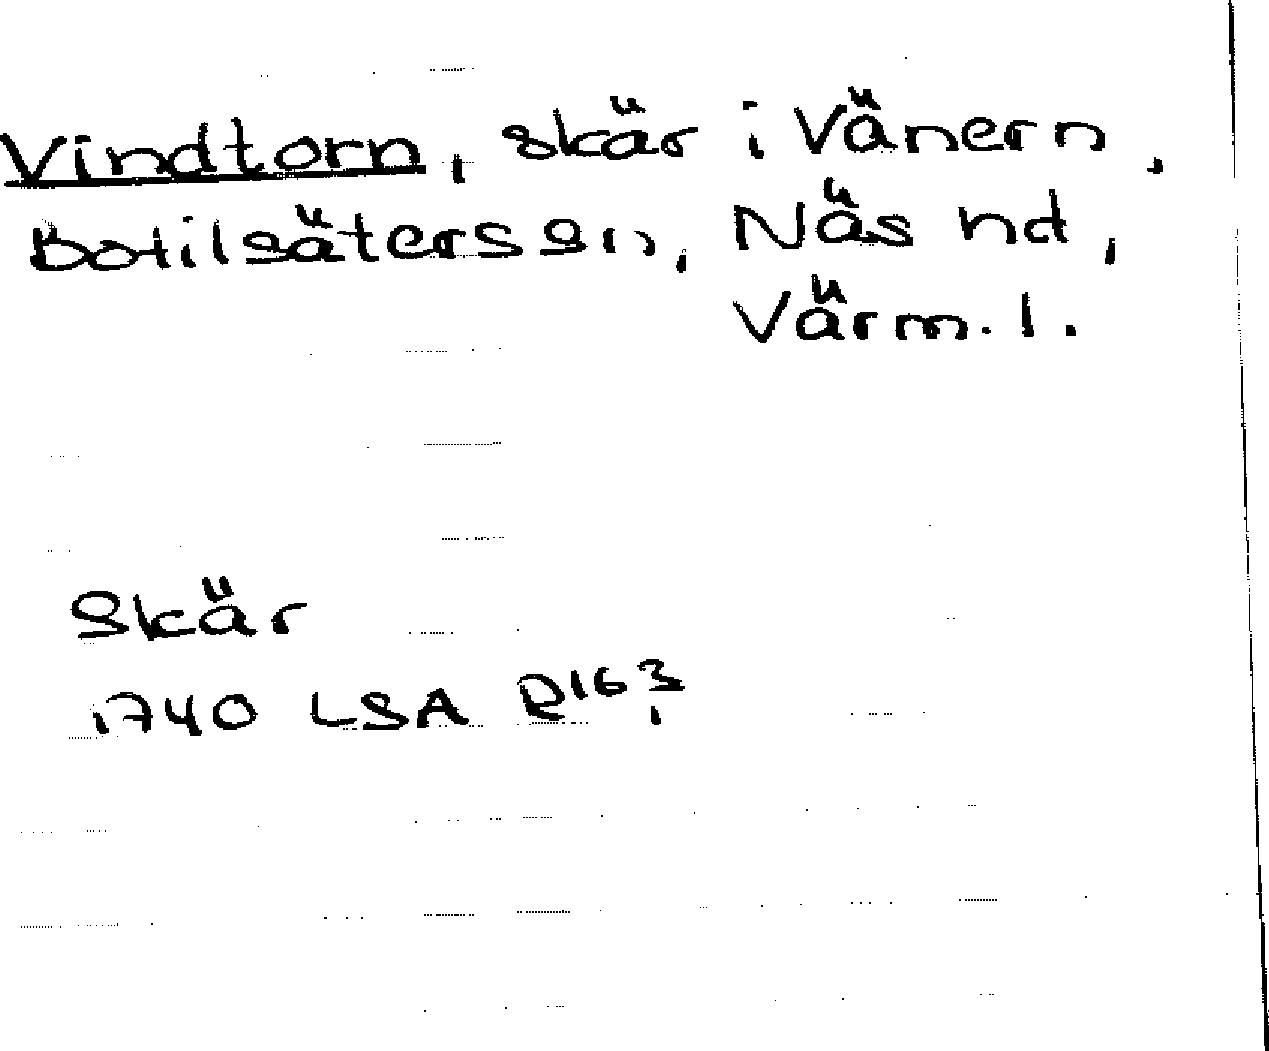 Vindtorn, skär i Vänern,
Botilsäters sn, Näs hd,
Värm. l.
Skär
1740 LSA